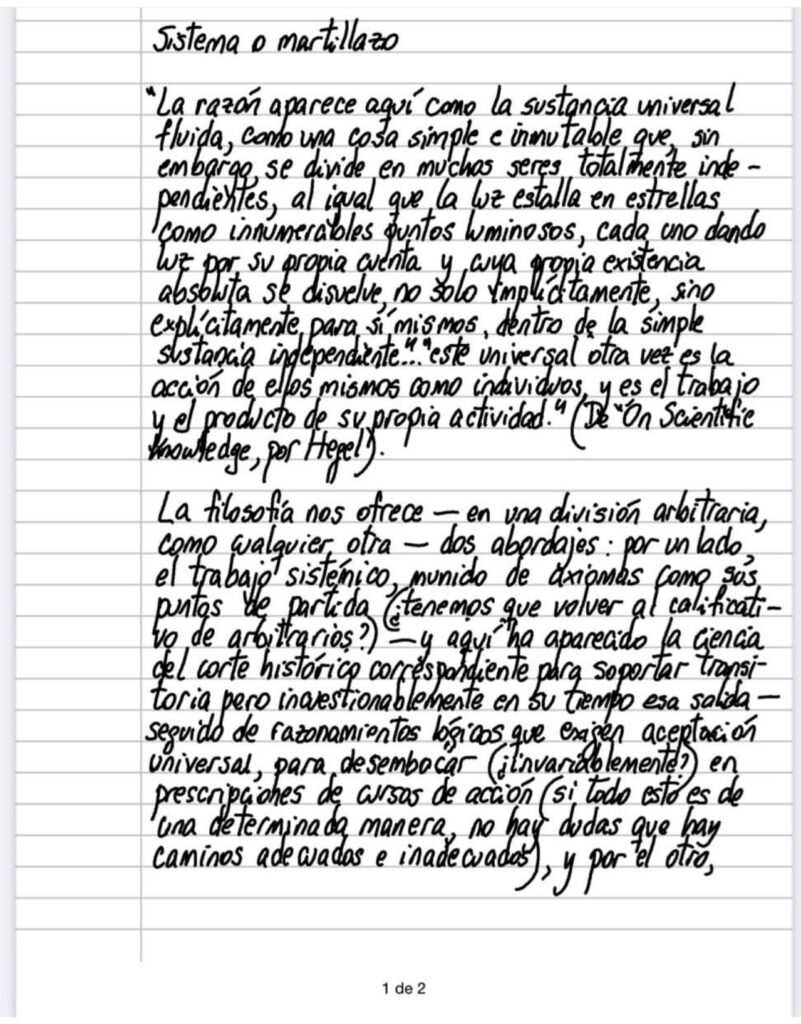 Sistema o martillazo
"La razón aparece aquí como la sustancia universal
fluida, como una cosa simple e inmutable que, sin
embargo, se divide en muchos seres totalmente inde-
pendientes, al igual que la luz estalla en estrellas
como innumerables puntos luminosos, cada uno dando
luz por su propia cuenta y cuya propia existencia
absoluta se disuelve, no solo implícitamente, sino
explícitamente para sí mismos, dentro de la simple
sustancia independiente"..."este universal otra vez es la
acción de ellos mismos como individuos, y es el trabajo
y el producto de su propia actividad." (De "On Scientific
knowledge, por Hegel").
La filosofía nos ofrece — en una división arbitraria,
como cualquier otra — dos abordajes: por un lado,
el trabajo sistémico, munido de axiomas como sus
puntos de partida (¿tenemos que volver al calificati-
vo de arbitrarios?) — y aquí ha aparecido la ciencia
del corte histórico correspondiente para soportar transi-
toria pero incuestionablemente en su tiempo esa salida —
seguido de razonamientos lógicos que exigen aceptación
universal, para desembocar (¿invariablemente?) en
prescripciones de cursos de acción (si todo esto es de
una determinada manera, no hay dudas que hay
caminos adecuados e inadecuados), y por el otro,
1 de 2